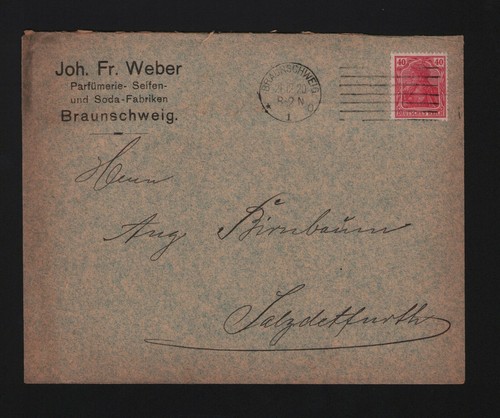 Joh. Fr. Weber
Parfümerie- Seifen-
und Soda-Fabriken
Braunschweig.
BRAUNSCHWEIG
12.20
8-9 N
1
40 40
DEUTSCHES REICH
Herrn
Aug Birnbaum
Salzdetfurth